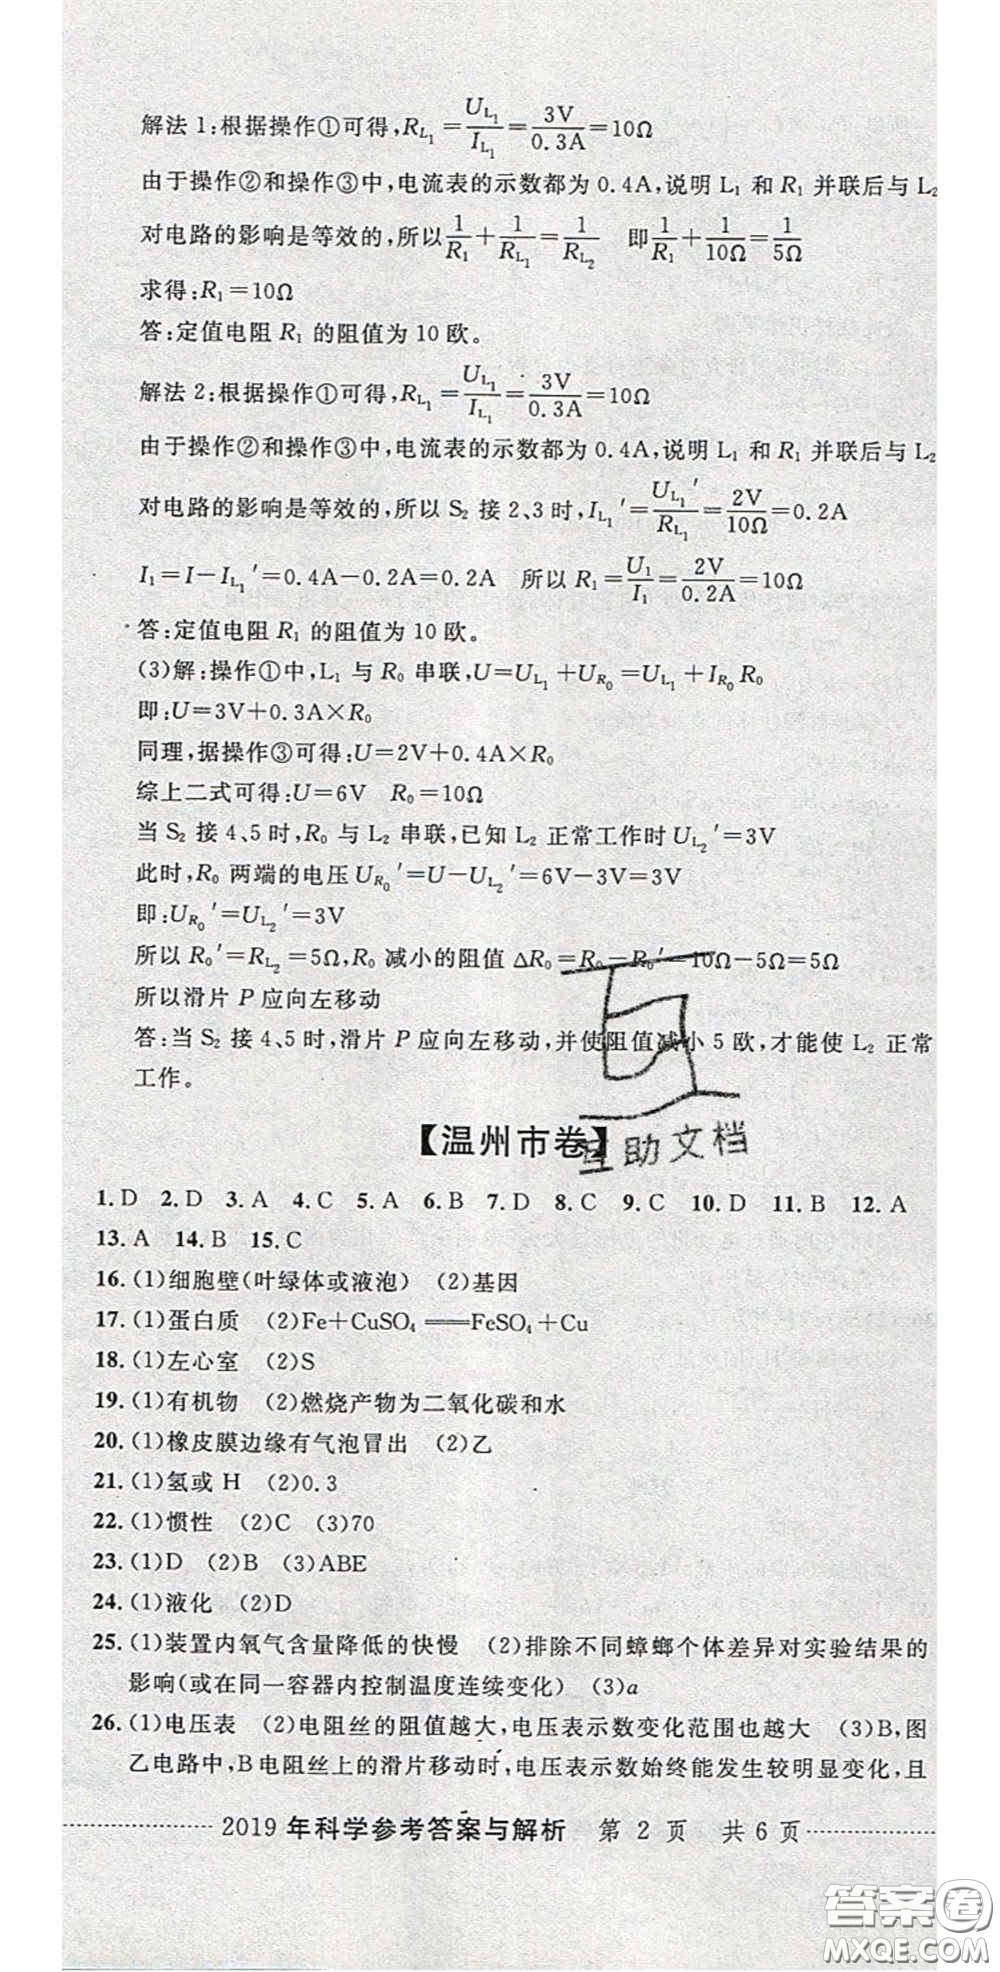 解法1:根据操作①可得,R_{L_1}=\frac{U_{L_1}}{I_{L_1}}=\frac{3V}{0.3A}=10Ω
由于操作②和操作③中,电流表的示数都为0.4A,说明L₁和R₁并联后与L₂
对电路的影响是等效的,所以\frac{1}{R_1}+\frac{1}{R_{L_1}}=\frac{1}{R_{L_2}} 即\frac{1}{R_1}+\frac{1}{10Ω}=\frac{1}{5Ω}
求得:R₁=10Ω
答:定值电阻R₁的阻值为10欧。
解法2:根据操作①可得,R_{L_1}=\frac{U_{L_1}}{I_{L_1}}=\frac{3V}{0.3A}=10Ω
由于操作②和操作③中,电流表的示数都为0.4A,说明L₁和R₁并联后与L₂
对电路的影响是等效的,所以S₂接2、3时,I_{L_1}′=\frac{U_{L_1}′}{R_{L_1}}=\frac{2V}{10Ω}=0.2A
I₁=I-I_{L_1}′=0.4A-0.2A=0.2A 所以R₁=\frac{U_1}{I_1}=\frac{2V}{0.2A}=10Ω
答:定值电阻R₁的阻值为10欧。
(3)解:操作①中,L₁与R₀串联,U=U_{L_1}+U_{R_0}=U_{L_1}+I_{R_0}R₀
即:U=3V+0.3A×R₀
同理,据操作③可得:U=2V+0.4A×R₀
综上二式可得:U=6V R₀=10Ω
当S₂接4、5时,R₀与L₂串联,已知L₂正常工作时U_{L_2}′=3V
此时,R₀两端的电压U_{R_0}′=U-U_{L_2}′=6V-3V=3V
即:U_{R_0}′=U_{L_2}′=3V
所以R₀′=R_{L_2}=5Ω,R₀减小的阻值ΔR₀=R₀-R₀′=10Ω-5Ω=5Ω
所以滑片P应向左移动
答:当S₂接4、5时,滑片P应向左移动,并使阻值减小5欧,才能使L₂正常
工作。
【温州市卷】
互助文档
1.D 2.D 3.A 4.C 5.A 6.B 7.D 8.C 9.C 10.D 11.B 12.A
13.A 14.B 15.C
16.(1)细胞壁(叶绿体或液泡) (2)基因
17.(1)蛋白质 (2)Fe+CuSO₄══FeSO₄+Cu
18.(1)左心室 (2)S
19.(1)有机物 (2)燃烧产物为二氧化碳和水
20.(1)橡皮膜边缘有气泡冒出 (2)乙
21.(1)氢或H (2)0.3
22.(1)惯性 (2)C (3)70
23.(1)D (2)B (3)ABE
24.(1)液化 (2)D
25.(1)装置内氧气含量降低的快慢 (2)排除不同蟑螂个体差异对实验结果的
影响(或在同一容器内控制温度连续变化) (3)a
26.(1)电压表 (2)电阻丝的阻值越大,电压表示数变化范围也越大 (3)B,图
乙电路中,B电阻丝上的滑片移动时,电压表示数始终能发生较明显变化,且
2019年科学参考答案与解析 第2页 共6页
答案圈
MXQE.COM